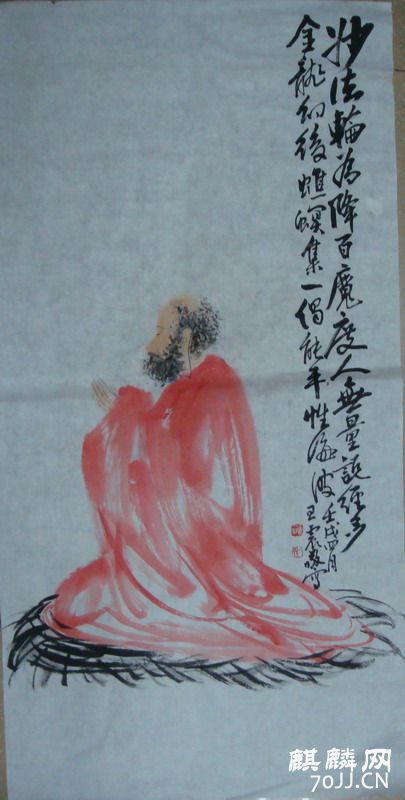 妙法輪為降百魔度人無量說經多
金龍幻後蟭螟集一偈能平性海波
壬戌四月
王震敬寫
麒麟网
70JJ.CN